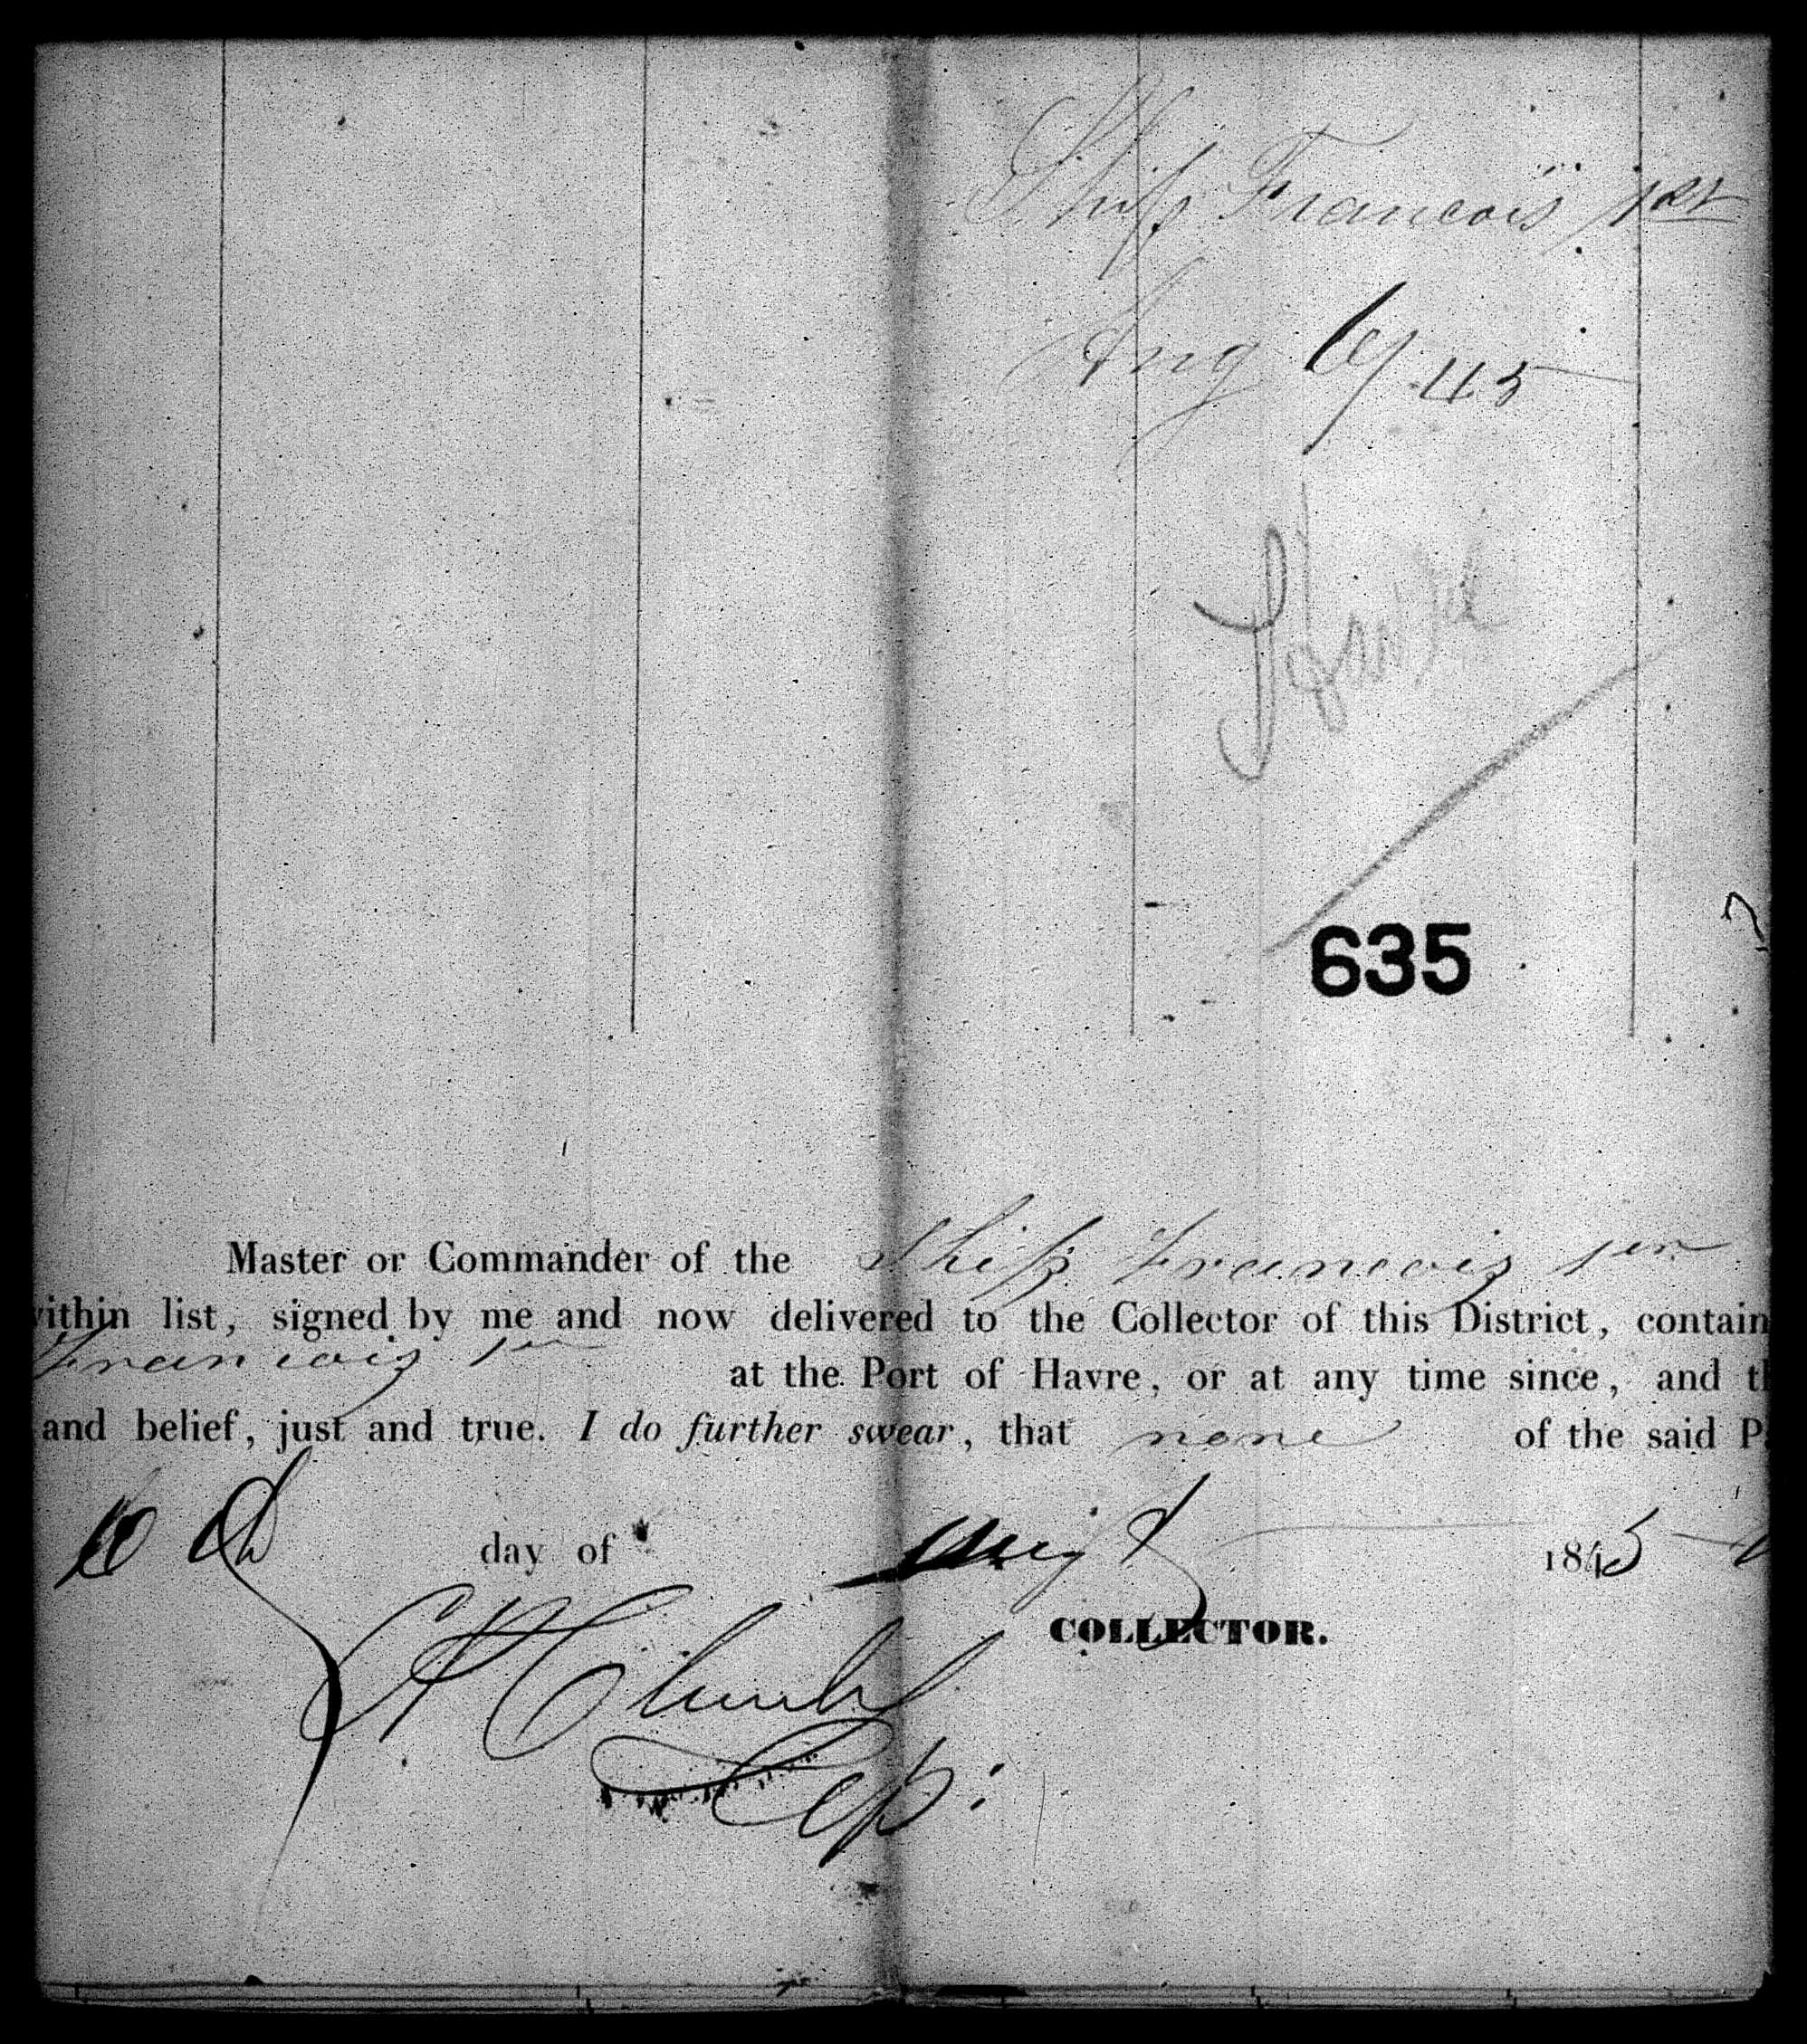 Ship Francois 1st
Aug 6/45
Havre
635
Master or Commander of the Ship Francois 1er
within list, signed by me and now delivered to the Collector of this District, contain
Francois 1er at the Port of Havre, or at any time since, and th
and belief, just and true. I do further swear, that none of the said Pa
day of Augt 1845
COLLECTOR.
Dep: